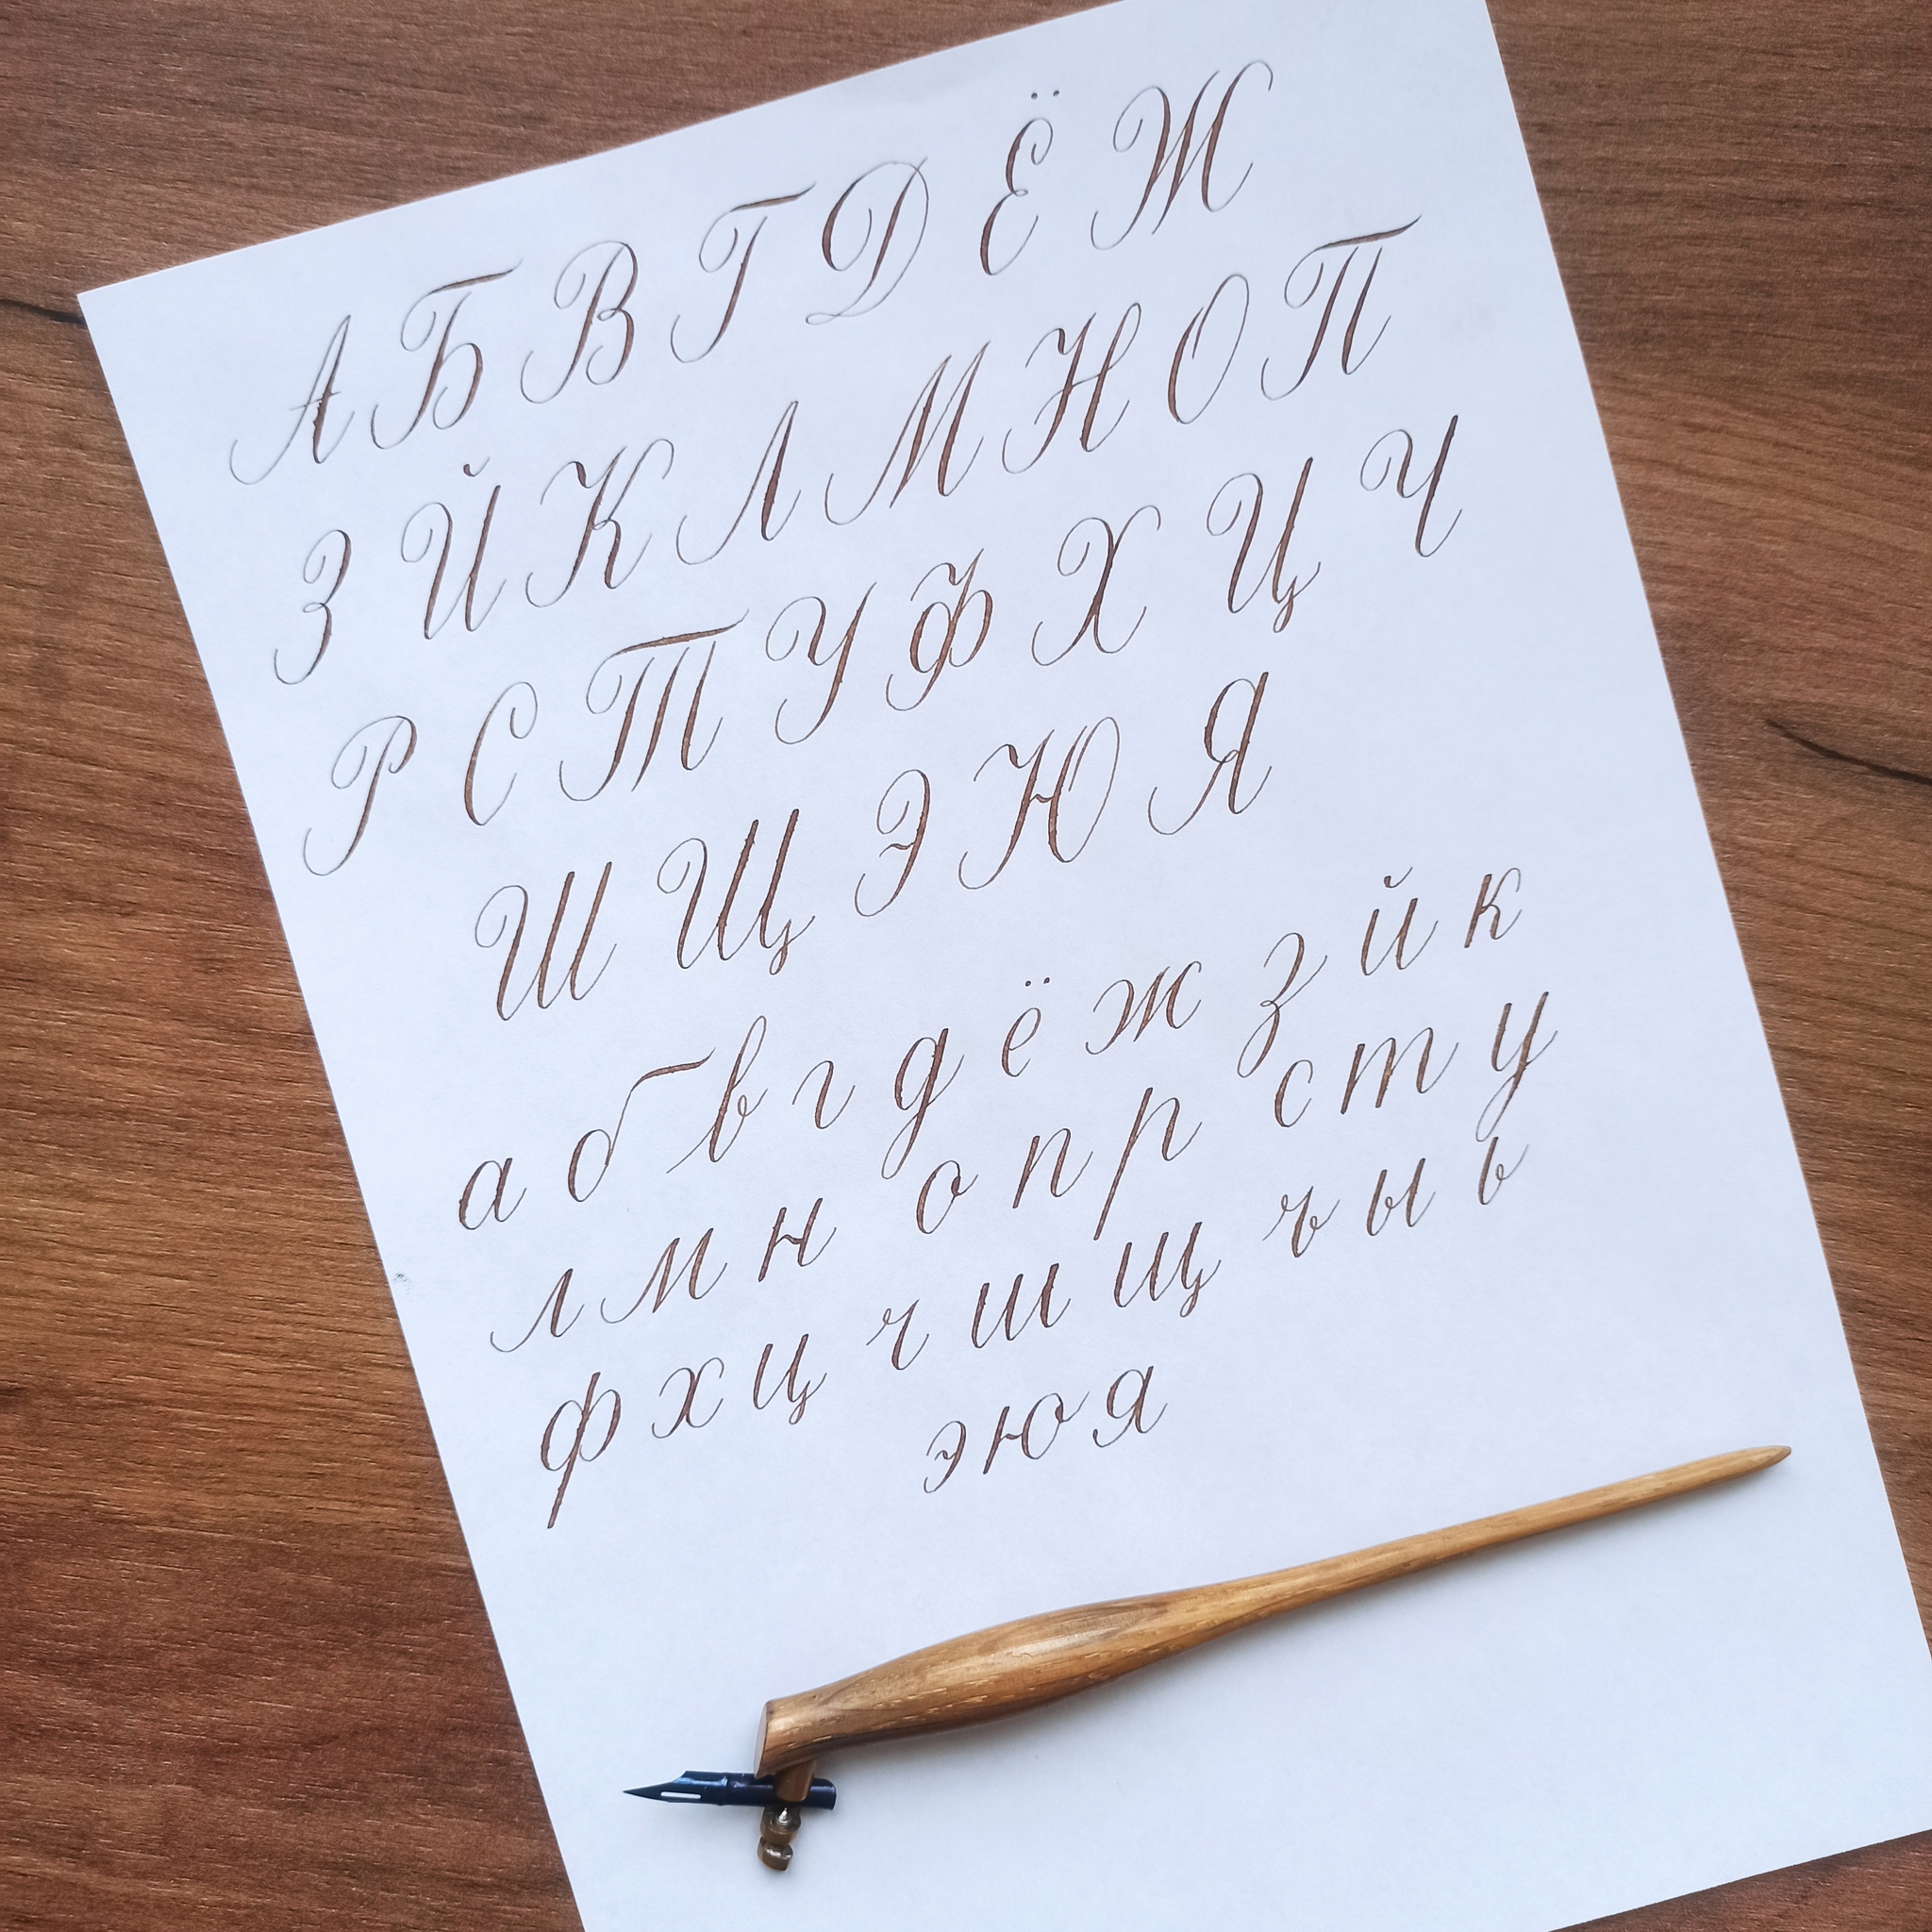 А Б В Г Д Ё Ж
З Й К Л М Н О П
Р С Т У Ф Х Ц Ч
Ш Щ Э Ю Я
а б в г д ё ж з й к
л м н о п р с т у
ф х ц ч ш щ ъ ы ь
э ю я